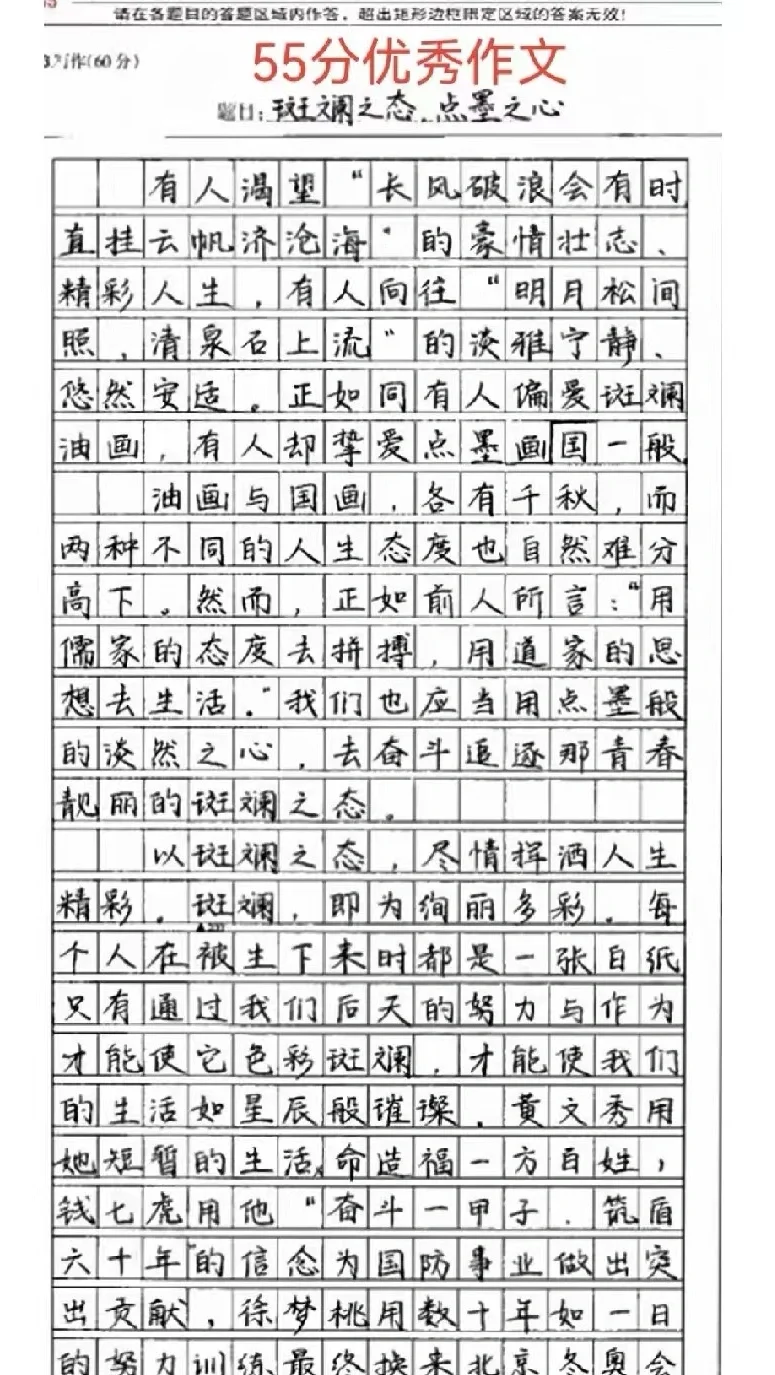 请在各题目的答题区域内作答，超出矩形边框限定区域的答案无效！
写作(60分)
55分优秀作文
题目：斑斓之态，点墨之心
有人渴望“长风破浪会有时
直挂云帆济沧海”的豪情壮志、
精彩人生，有人向往“明月松间
照，清泉石上流”的淡雅宁静、
悠然安适。正如同有人偏爱斑斓
油画，有人却挚爱点墨画国一般
油画与国画，各有千秋，而
两种不同的人生态度也自然难分
高下。然而，正如前人所言：“用
儒家的态度去拼搏，用道家的思
想去生活。”我们也应当用点墨般
的淡然之心，去奋斗追逐那青春
靓丽的斑斓之态。
以斑斓之态，尽情挥洒人生
精彩。斑斓，即为绚丽多彩。每
个人在被生下来时都是一张白纸
只有通过我们后天的努力与作为
才能使它色彩斑斓，才能使我们
的生活如星辰般璀璨。黄文秀用
她短暂的生活命造福一方百姓，
钱七虎用他“奋斗一甲子，筑盾
六十年”的信念为国防事业做出突
出贡献，徐梦桃用数十年如一日
的努力训练最终换来北京冬奥会